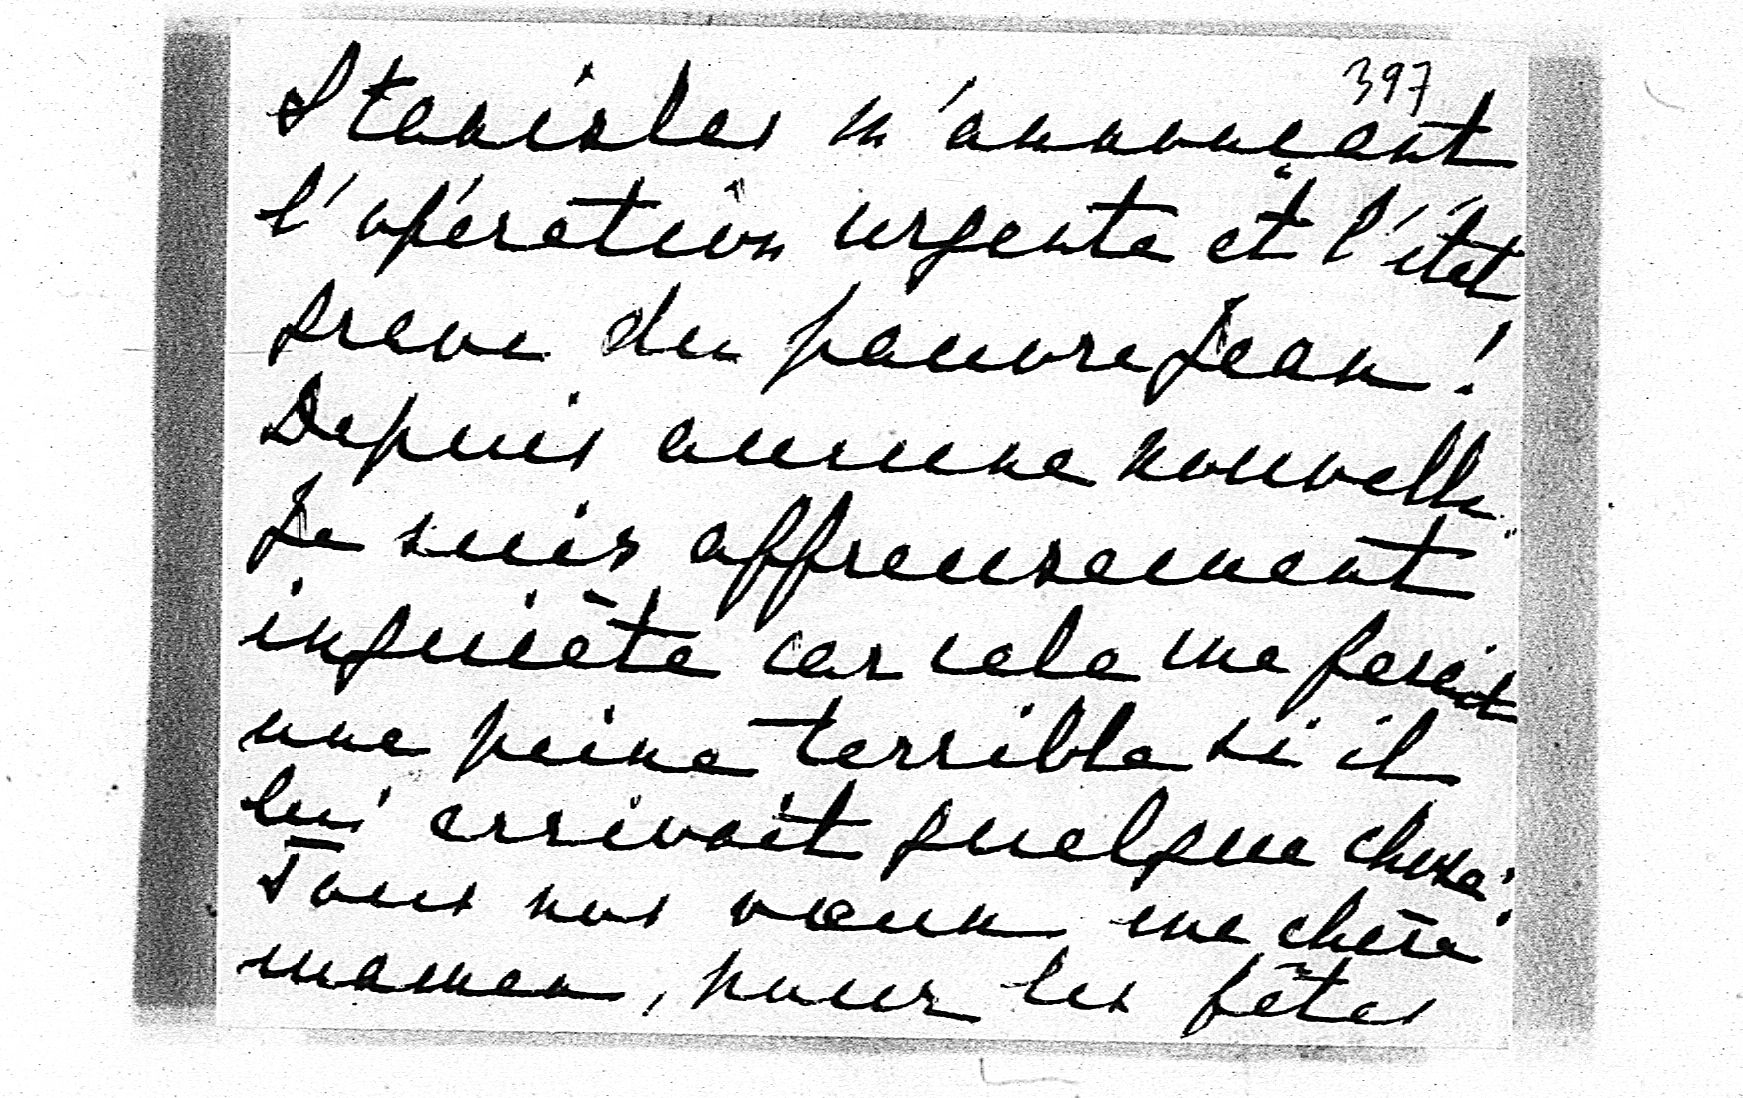 397
Stanislas m'annonçant
l'opération urgente et l'état
grave du pauvre Jean !
Depuis aucune nouvelle.
Je suis affreusement
inquiète car cela me ferait
une peine terrible si il
lui arrivait quelque chose.
Tous nos vœux ma chère
maman, pour les fêtes